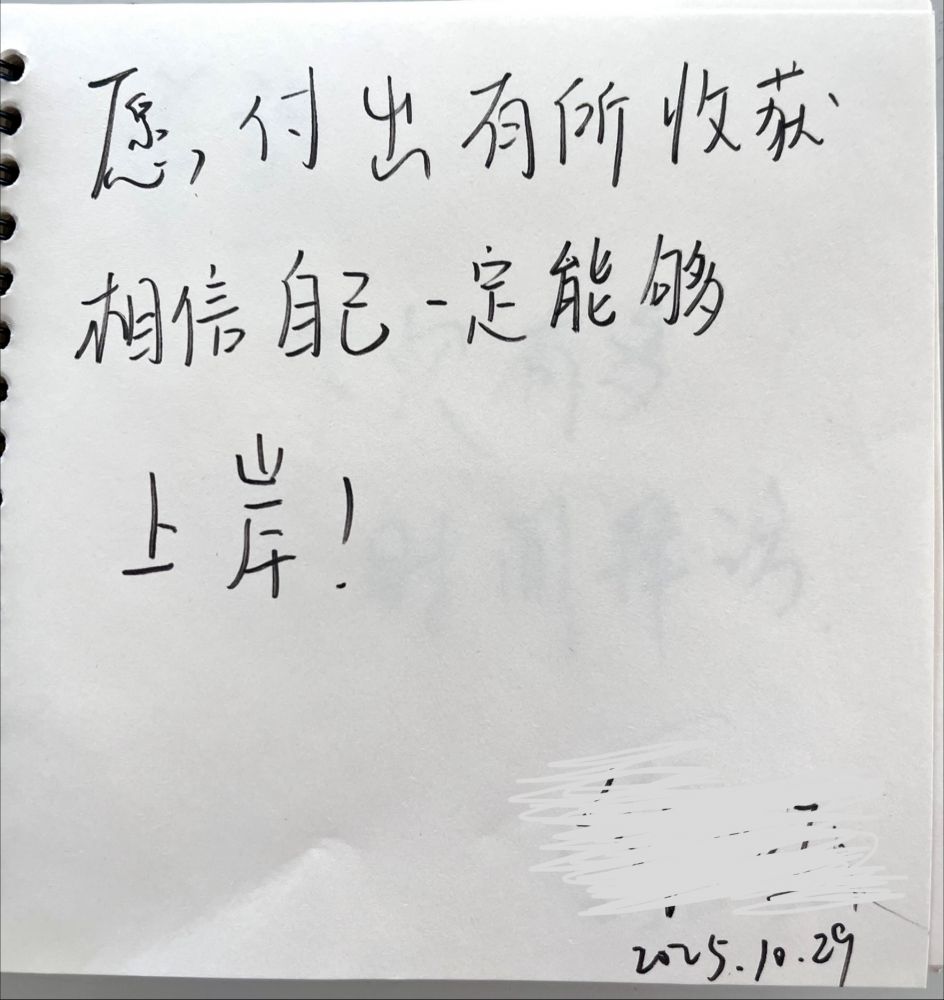 愿，付出有所收获
相信自己一定能够
上岸！
2025.10.29